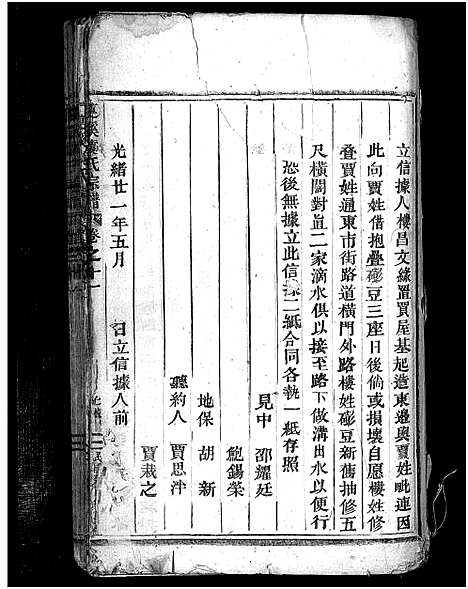 立信據人樓昌文緣置買屋基起造東邊與賈姓毗連因
此向賈姓借抱疊磡豆三座日後倘或損壞自愿樓姓修
疊賈姓通東市街路道橫門外路樓姓磡豆新舊抽修五
尺橫闊對直二家滴水俱以接至路下做溝出水以便行
恐後無據立此信據二紙合同各執一紙存照
見中 邵耀廷
鮑錫榮
地保 胡新
聽約人 賈思沖
賈裁之
光緒廿一年五月 日立信據人前
氏宗譜 卷之十